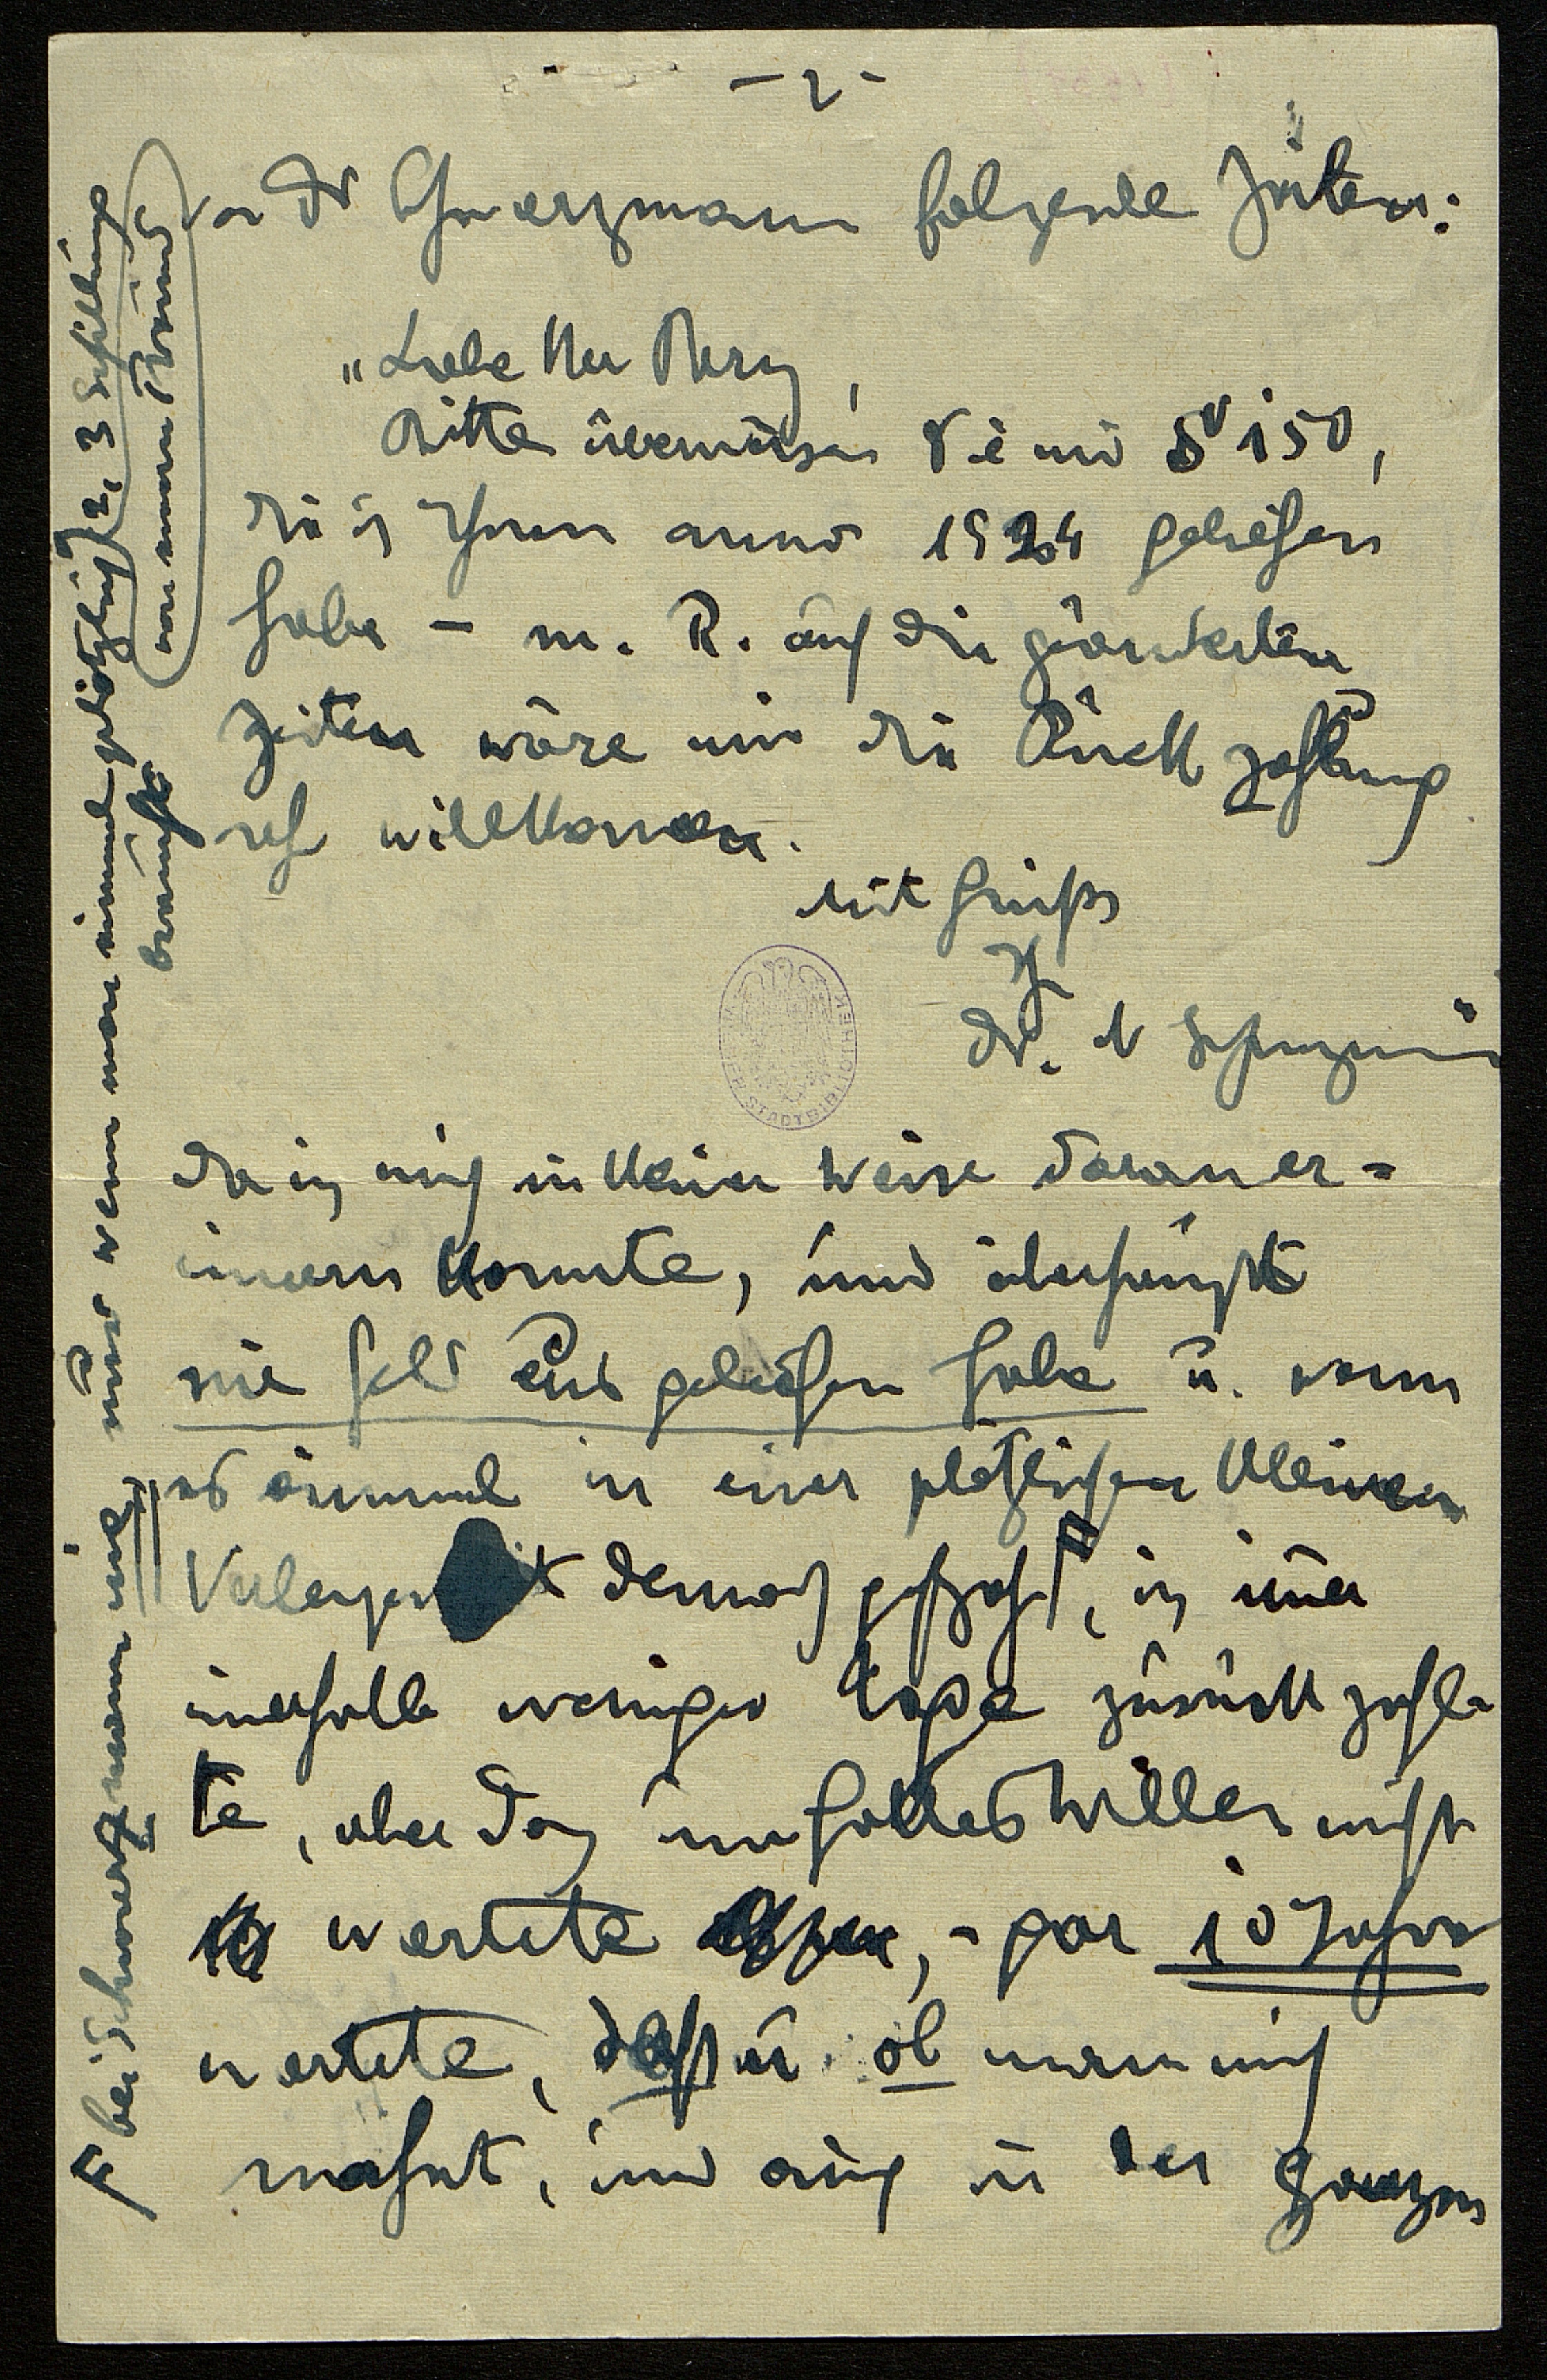 - 2 -
Dr Schwarzmann folgende Zeilen:
"Lieber Herr Berg,
Bitte überweisen Sie mir S 150,
die ich Ihnen anno 1924 geliehen
habe – m. R. auf die geänderten
Zeiten wäre mir die Rückzahlung
sehr willkommen.
Mit Grüßen
Ihr
Dr. Schwarzmann"
Da ich mich in keiner Weise daran er=
innern konnte, und überhaupt
nie Geld aus geliehen habe u. wenn
es einmal in einer plötzlichen kleinen
Verlegenheit dennoch geschah, ich immer
innerhalb weniger Tage zurückzahl=
te, aber doch um Gottes Willen nicht
wartete, - gar 10 Jahre
wartete, daß u. ob man mich
mahnt, und auch in der ganzen
F bei Schwarzmann nie, und wenn man einmal plötzlich 2, 3 Schillinge
braucht
von einem Freund
WIENER STADTBIBLIOTHEK